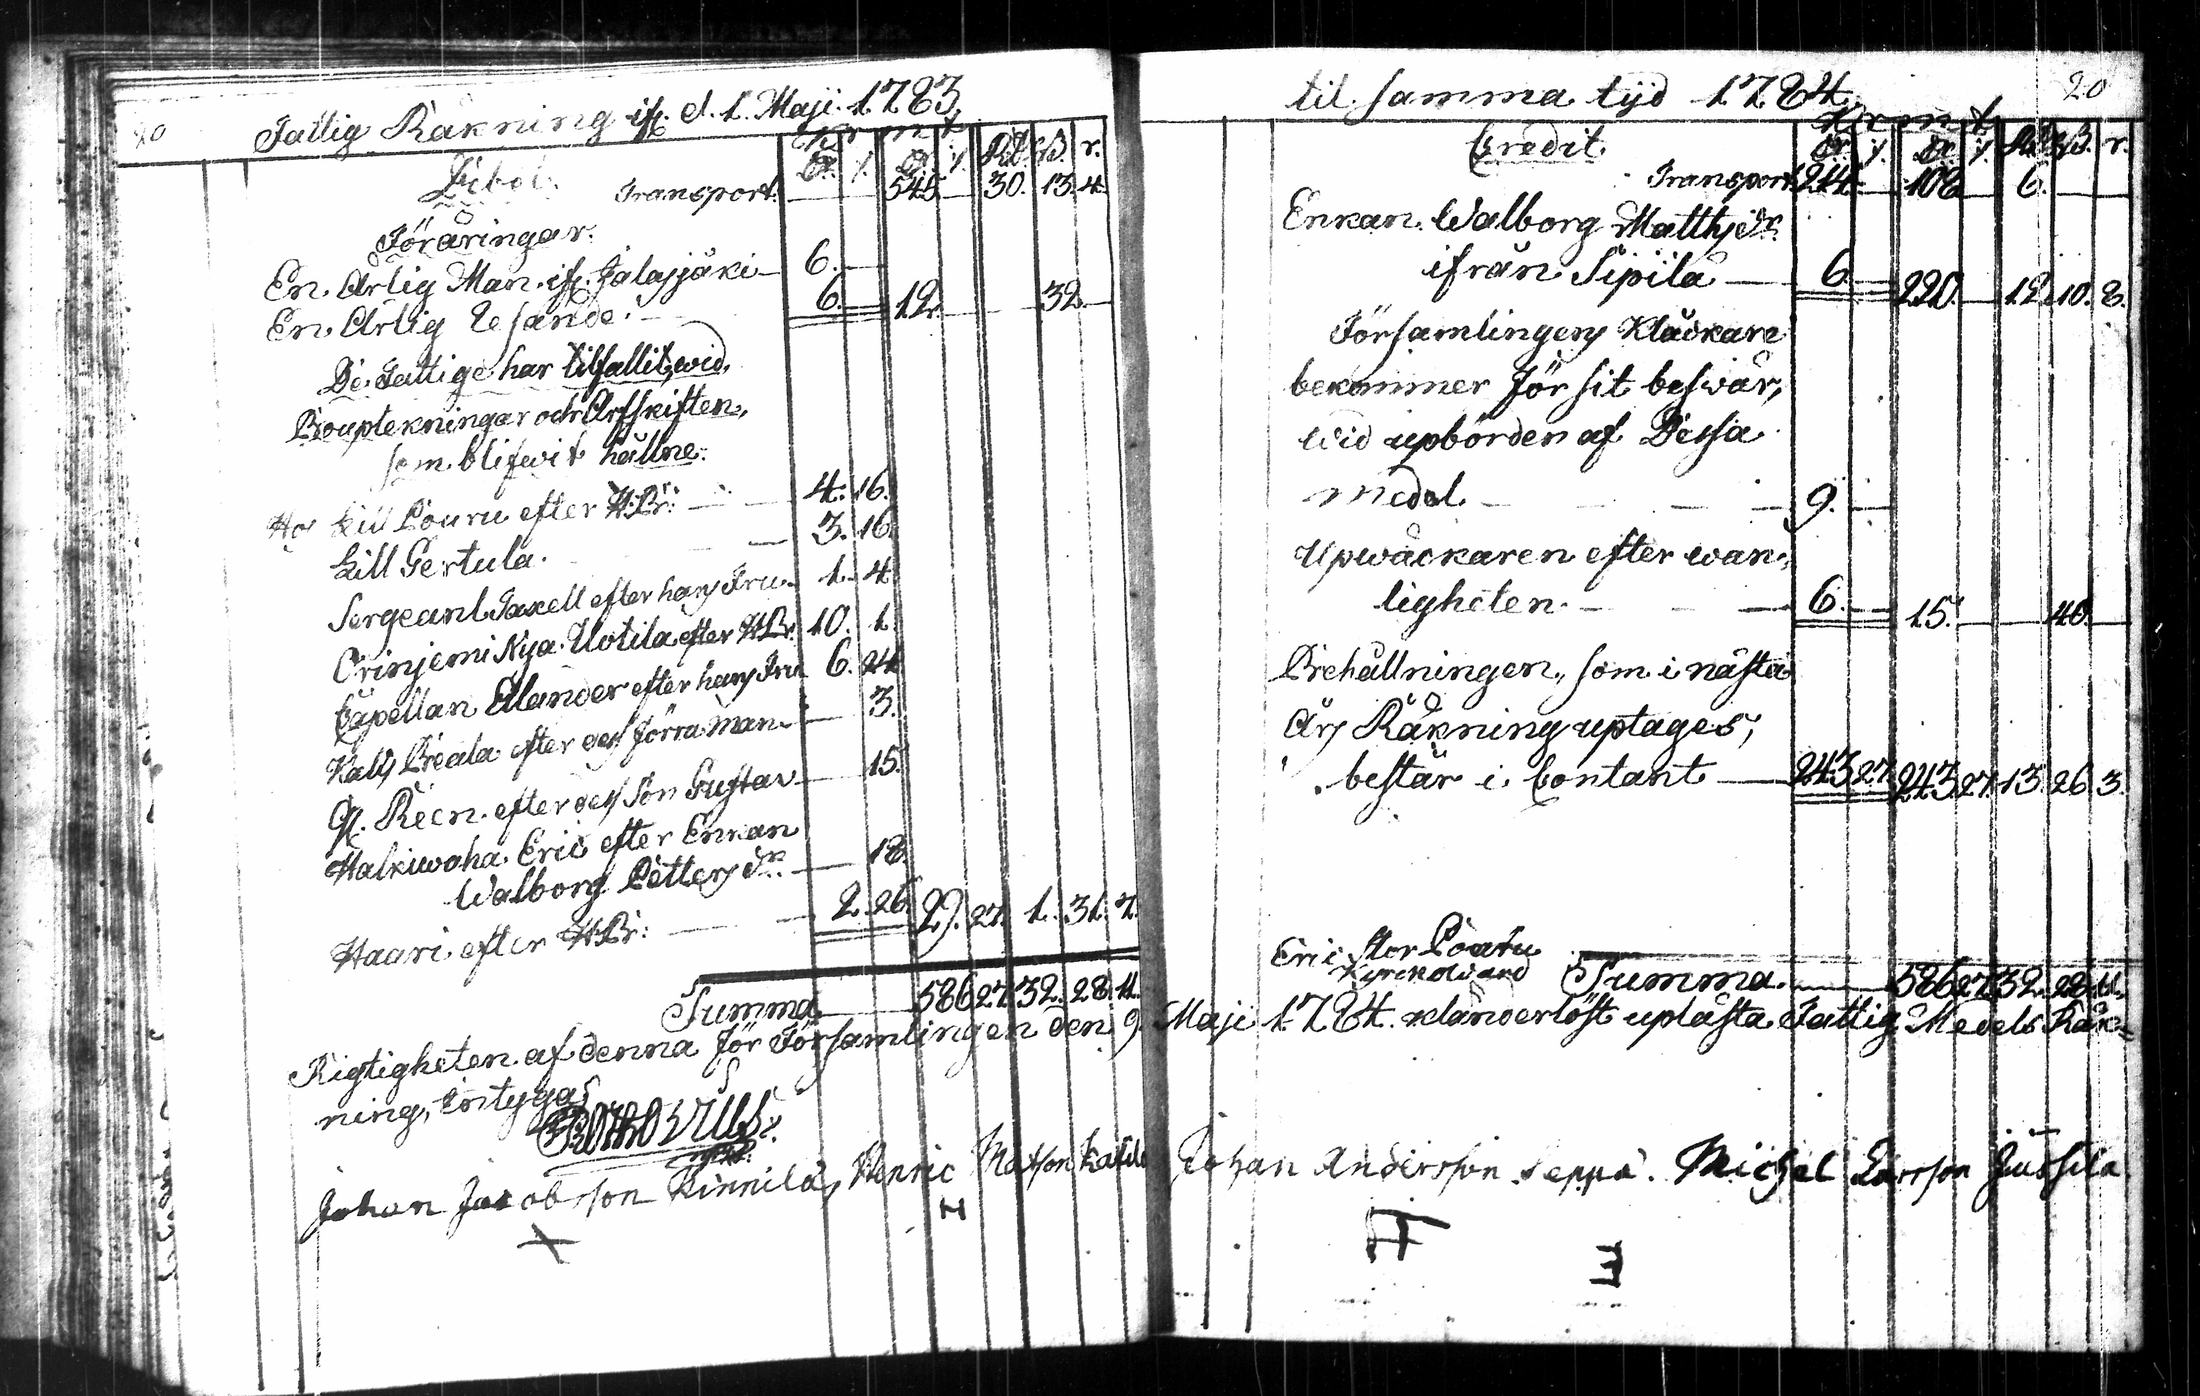 20 Fattig Räkning ifr. d. 1. Maji. 1783.
Debet.
Transport. 545. 30. 13. 4.
Föräringar.
En Ärlig Man ifr. Jalasjäki 6.
En Ärlig Resande. 6. 12. 32.
De Fattige har tilfallit, wid,
Bouptekningar och Arfskiften,
som blifwit hållne:
Hos Lill Pouru efter H:Br: 4. 16.
Lill Gertula. 3. 16.
Sergeant Taxell efter hans Fru 1. 4.
Orinjemi Nya Uotila efter H:Br. 10. 1.
Capellan Elander efter hans Fru 6. 24
efter dess förra Man 3.
efter dess Son Gustav 15.
Halkiwaha Eric efter Enkan
Walborg Petters dr. 18.
Haari efter H:Br: 2. 26. 29. 27. 1. 31. 7.
Summa 586 27. 32. 28. 11.
Rigtigheten af denna för Församlingen den 9
ning, intygas
Johan Jacobsson Kinnilä, Henric Matsson
X
H
til samma tijd 1784. 20
Credit
Transport. 214. 108 6.
Enkan Walborg Matthsdr.
ifrån Sipilä 6. 220. 12. 10. 8.
Församlingens Kläckare
bekommer för sit beswär,
wid upbörden af Dessa
medel 9.
Upwäckaren efter wan,
ligheten. 6. 15. 40.
Behållningen, som i nästa
Års Räkning uptages,
består i Contant 243 27. 243. 27. 13. 26. 3.
Eric Stor Pouru
Kyrckowärd
Summa. 586 27 32. 28. 11.
Maji 1784. klanderlöst uplästa Fattig Medels Räk-
Johan Andersson Seppä. Michel Larsson Jussila